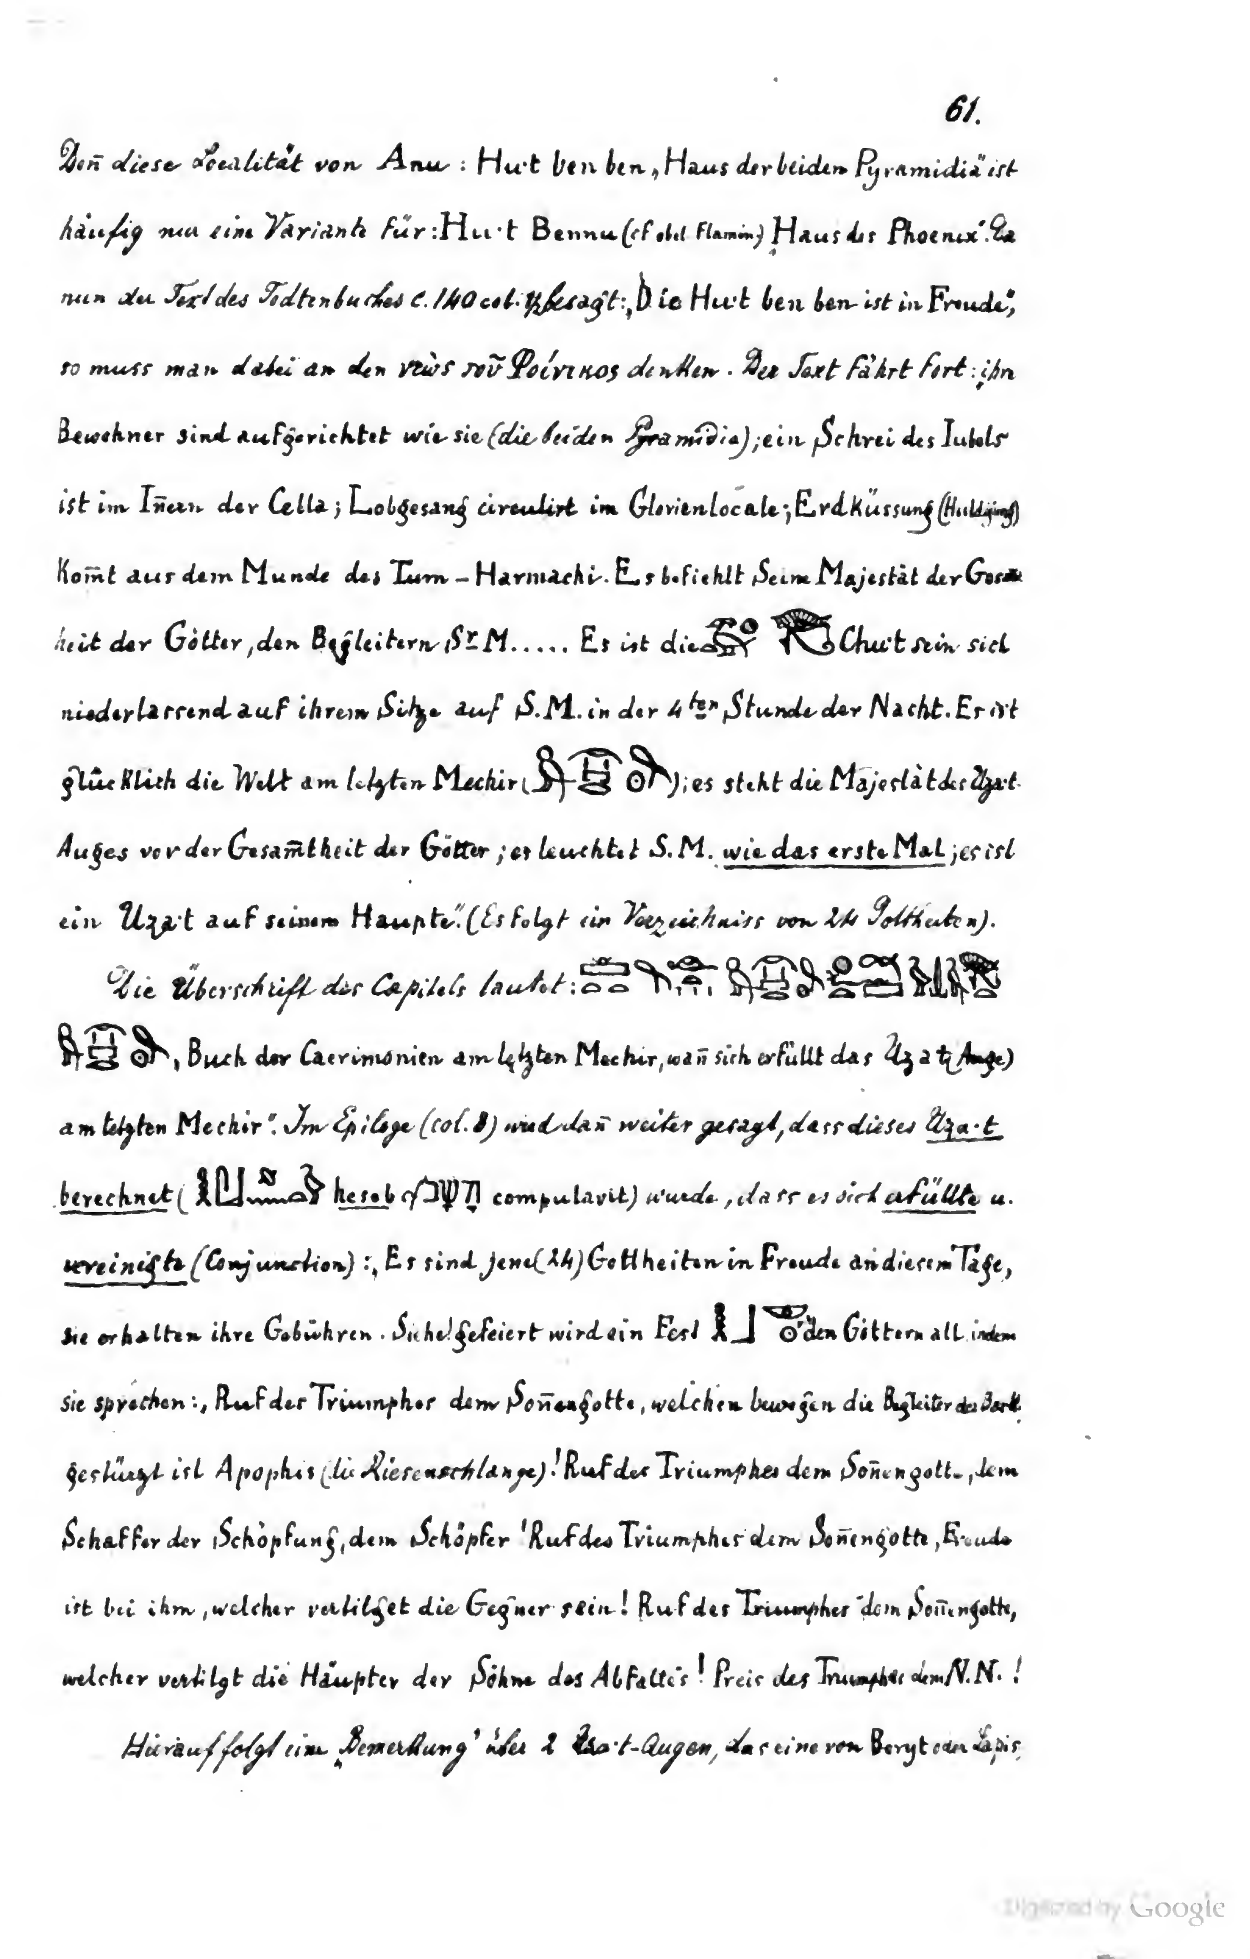 61.
Den̄ diese Localität von Anu : Hu·t ben ben „Haus der beiden Pyramidia" ist
häufig nur eine Variante für: Hu·t Bennu (cf obel Flamin.) „Haus des Phoenix". Da
nun der Text des Todtenbuches c. 140 col. besagt: „Die Hu·t ben ben ist in Freude",
so muss man dabei an den νεὼς τοῦ Φοίνικος denken. Der Text fährt fort: „ihre
Bewohner sind aufgerichtet wie sie (die beiden Pyramidia); ein Schrei des Jubels
ist im In̄ern der Cella; Lobgesang circulirt im Glorienlocale; Erdküssung (Huldigung)
kom̄t aus dem Munde des Tum-Harmachi. Es befiehlt Seine Majestät der Gesam̄t
heit der Götter, den Begleitern Sr M..... Es ist die Chu·t sein sich
niederlassend auf ihrem Sitze auf S.M. in der 4ten Stunde der Nacht. Es ist
glücklich die Welt am letzten Mechir ( ); es steht die Majestät des Uza·t
Auges vor der Gesam̄theit der Götter; es leuchtet S.M. wie das erste Mal; es ist
ein Uza·t auf seinem Haupte". (Es folgt ein Verzeichniss von 24 Gottheiten).
Die Überschrift des Capitels lautet:
„Buch der Caerimonien am letzten Mechir, wan̄ sich erfüllt das Uza·t (Auge)
am letzten Mechir". Im Epiloge (col. 8) wird dan̄ weiter gesagt, dass dieses Uza·t
berechnet ( heseb computavit) wurde, dass es sich erfüllte u.
vereinigte (Conjunction): „Es sind jene (24) Gottheiten in Freude an diesem Tage,
sie erhalten ihre Gebühren. Siehe! gefeiert wird ein Fest den Göttern all indem
sie sprechen: „Ruf des Triumphes dem Son̄engotte, welchen bewegen die Begleiter der Barke,
gestürzt ist Apophis (die Riesenschlange)! Ruf des Triumphes dem Son̄engotte, dem
Schaffer der Schöpfung, dem Schöpfer! Ruf des Triumphes dem Son̄engotte, Freude
ist bei ihm, welcher vertilget die Gegner sein! Ruf des Triumphes dem Son̄engotte,
welcher vertilgt die Häupter der Söhne des Abfalles! Preis des Triumphes dem N.N.!
Hierauf folgt eine „Bemerkung" über 2 Uza·t-Augen, das eine von Beryt oder Lapis
Digitized by Google